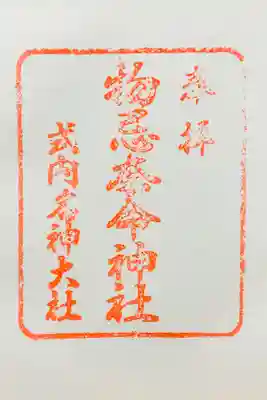 奉拝
物忌奈命神社
式内名神大社